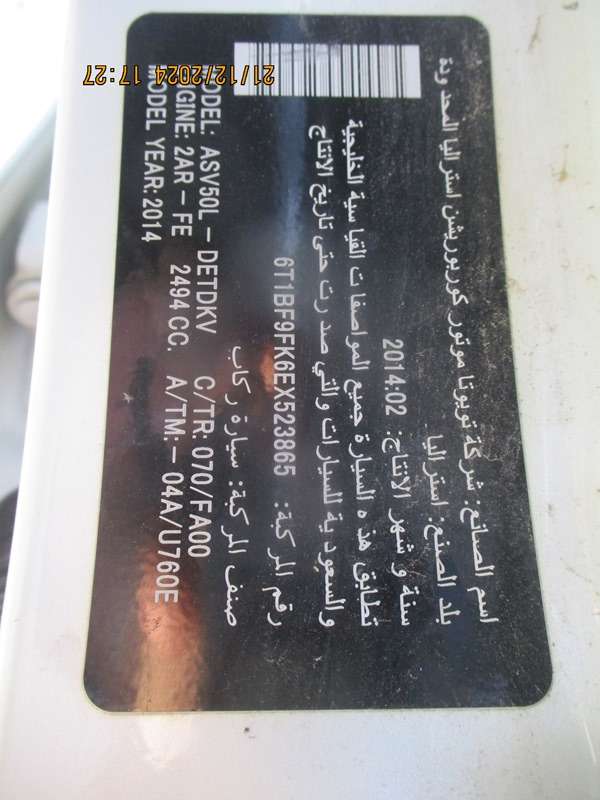 اسم الصانع: شركة تويوتا موتور كوربوريشن استراليا المحدودة
بلد الصنع: استراليا
سنة و شهر الانتاج: 2014:02
تطابق هذه السيارة جميع المواصفات القياسية الخليجية
والسعودية للسيارات والتي صدرت حتى تاريخ الانتاج
رقم المركبة: 6T1BF9FK6EX523865
صنف المركبة: سيارة ركاب
MODEL: ASV50L - DETDKV C/TR: 070/FA00
ENGINE: 2AR - FE 2494 CC. A/TM:- 04A/U760E
MODEL YEAR: 2014
21/12/2024 17:27